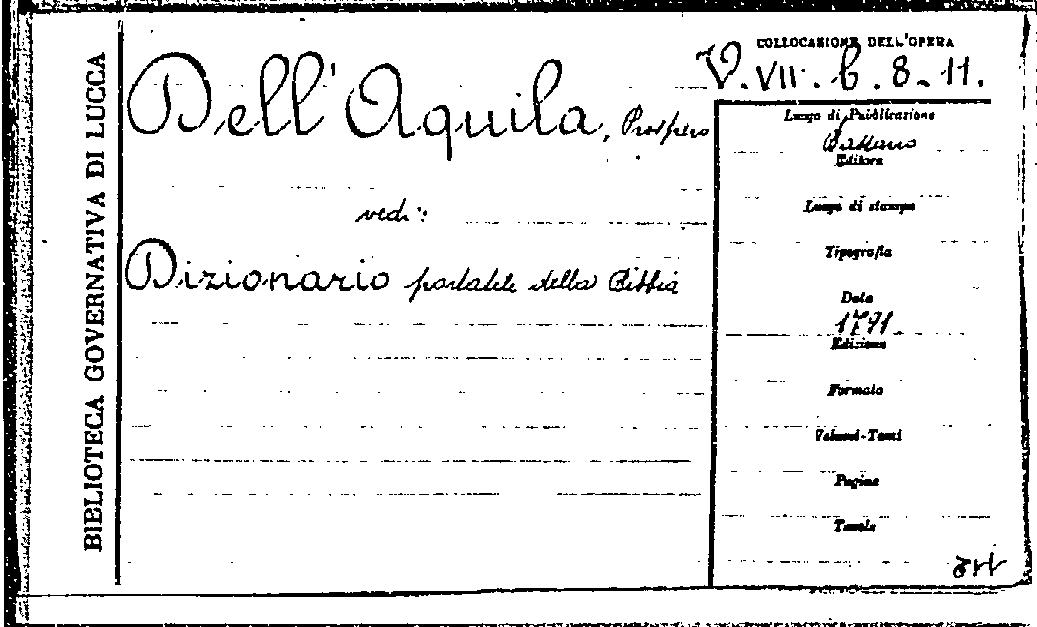 BIBLIOTECA GOVERNATIVA DI LUCCA
Dell'Aquila, Prospero
vedi:
Dizionario portatile della Bibbia
COLLOCAZIONE DELL'OPERA
V. VII. b. 8-11.
Luogo di Pubblicazione
Bassano
Editore
Luogo di stampa
Tipografia
Data
1791.
Edizione
Formato
Volumi-Tomi
Pagine
Tavole